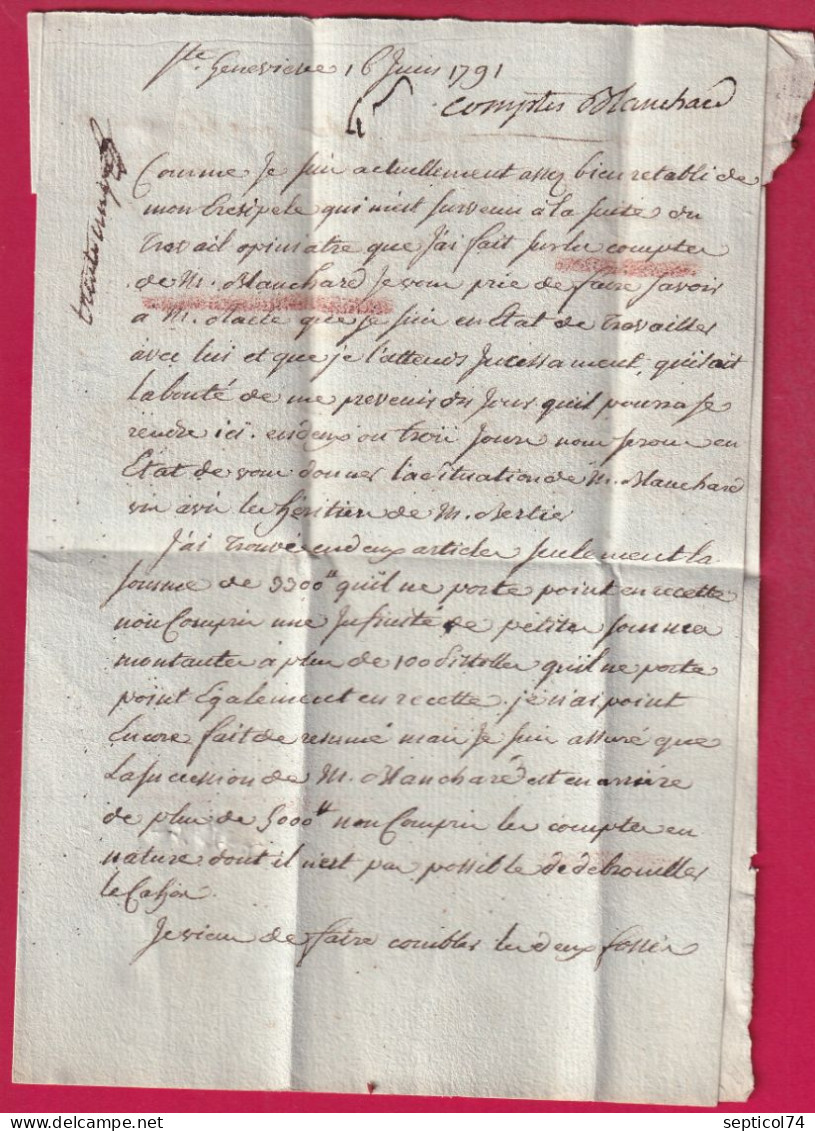 Ste Genevieve 16 Juin 1791
comptes Blanchard
Comme Je suis actuellement assez bien retabli de
mon Eresipele qui m'est survenu à la suite du
Travail opiniatre que J'ai fait sur les comptes
de M. Blanchard Je vous prie de faire savoir
a M. que je suis en Etat de Travailler
avec lui et que je l'attends Incessament, qu'il ait
la bonté de me prevenir des Jours qu'il pourra se
rendre ici. en deux ou trois Jours nous serons en
Etat de vous donner la situation de M. Blanchard
vis avis les héritiers de M. Bertier
J'ai Trouvé en deux articles seulement la
somme de 3300# qu'il ne porte point en recette
non Compris une Infinité de petites sommes
montantes a plus de 100 pistolles qu'il ne porte
point Egalement en recette. je n'ai point
Encore fait de resumé mais Je suis assuré que
La succession de M. Blanchard est en arriere
de plus de 5000# non Compris les comptes en
nature dont il n'est pas possible de debrouiller
le Cahos.
Je viens de faire combler les deux fossés
septicol74